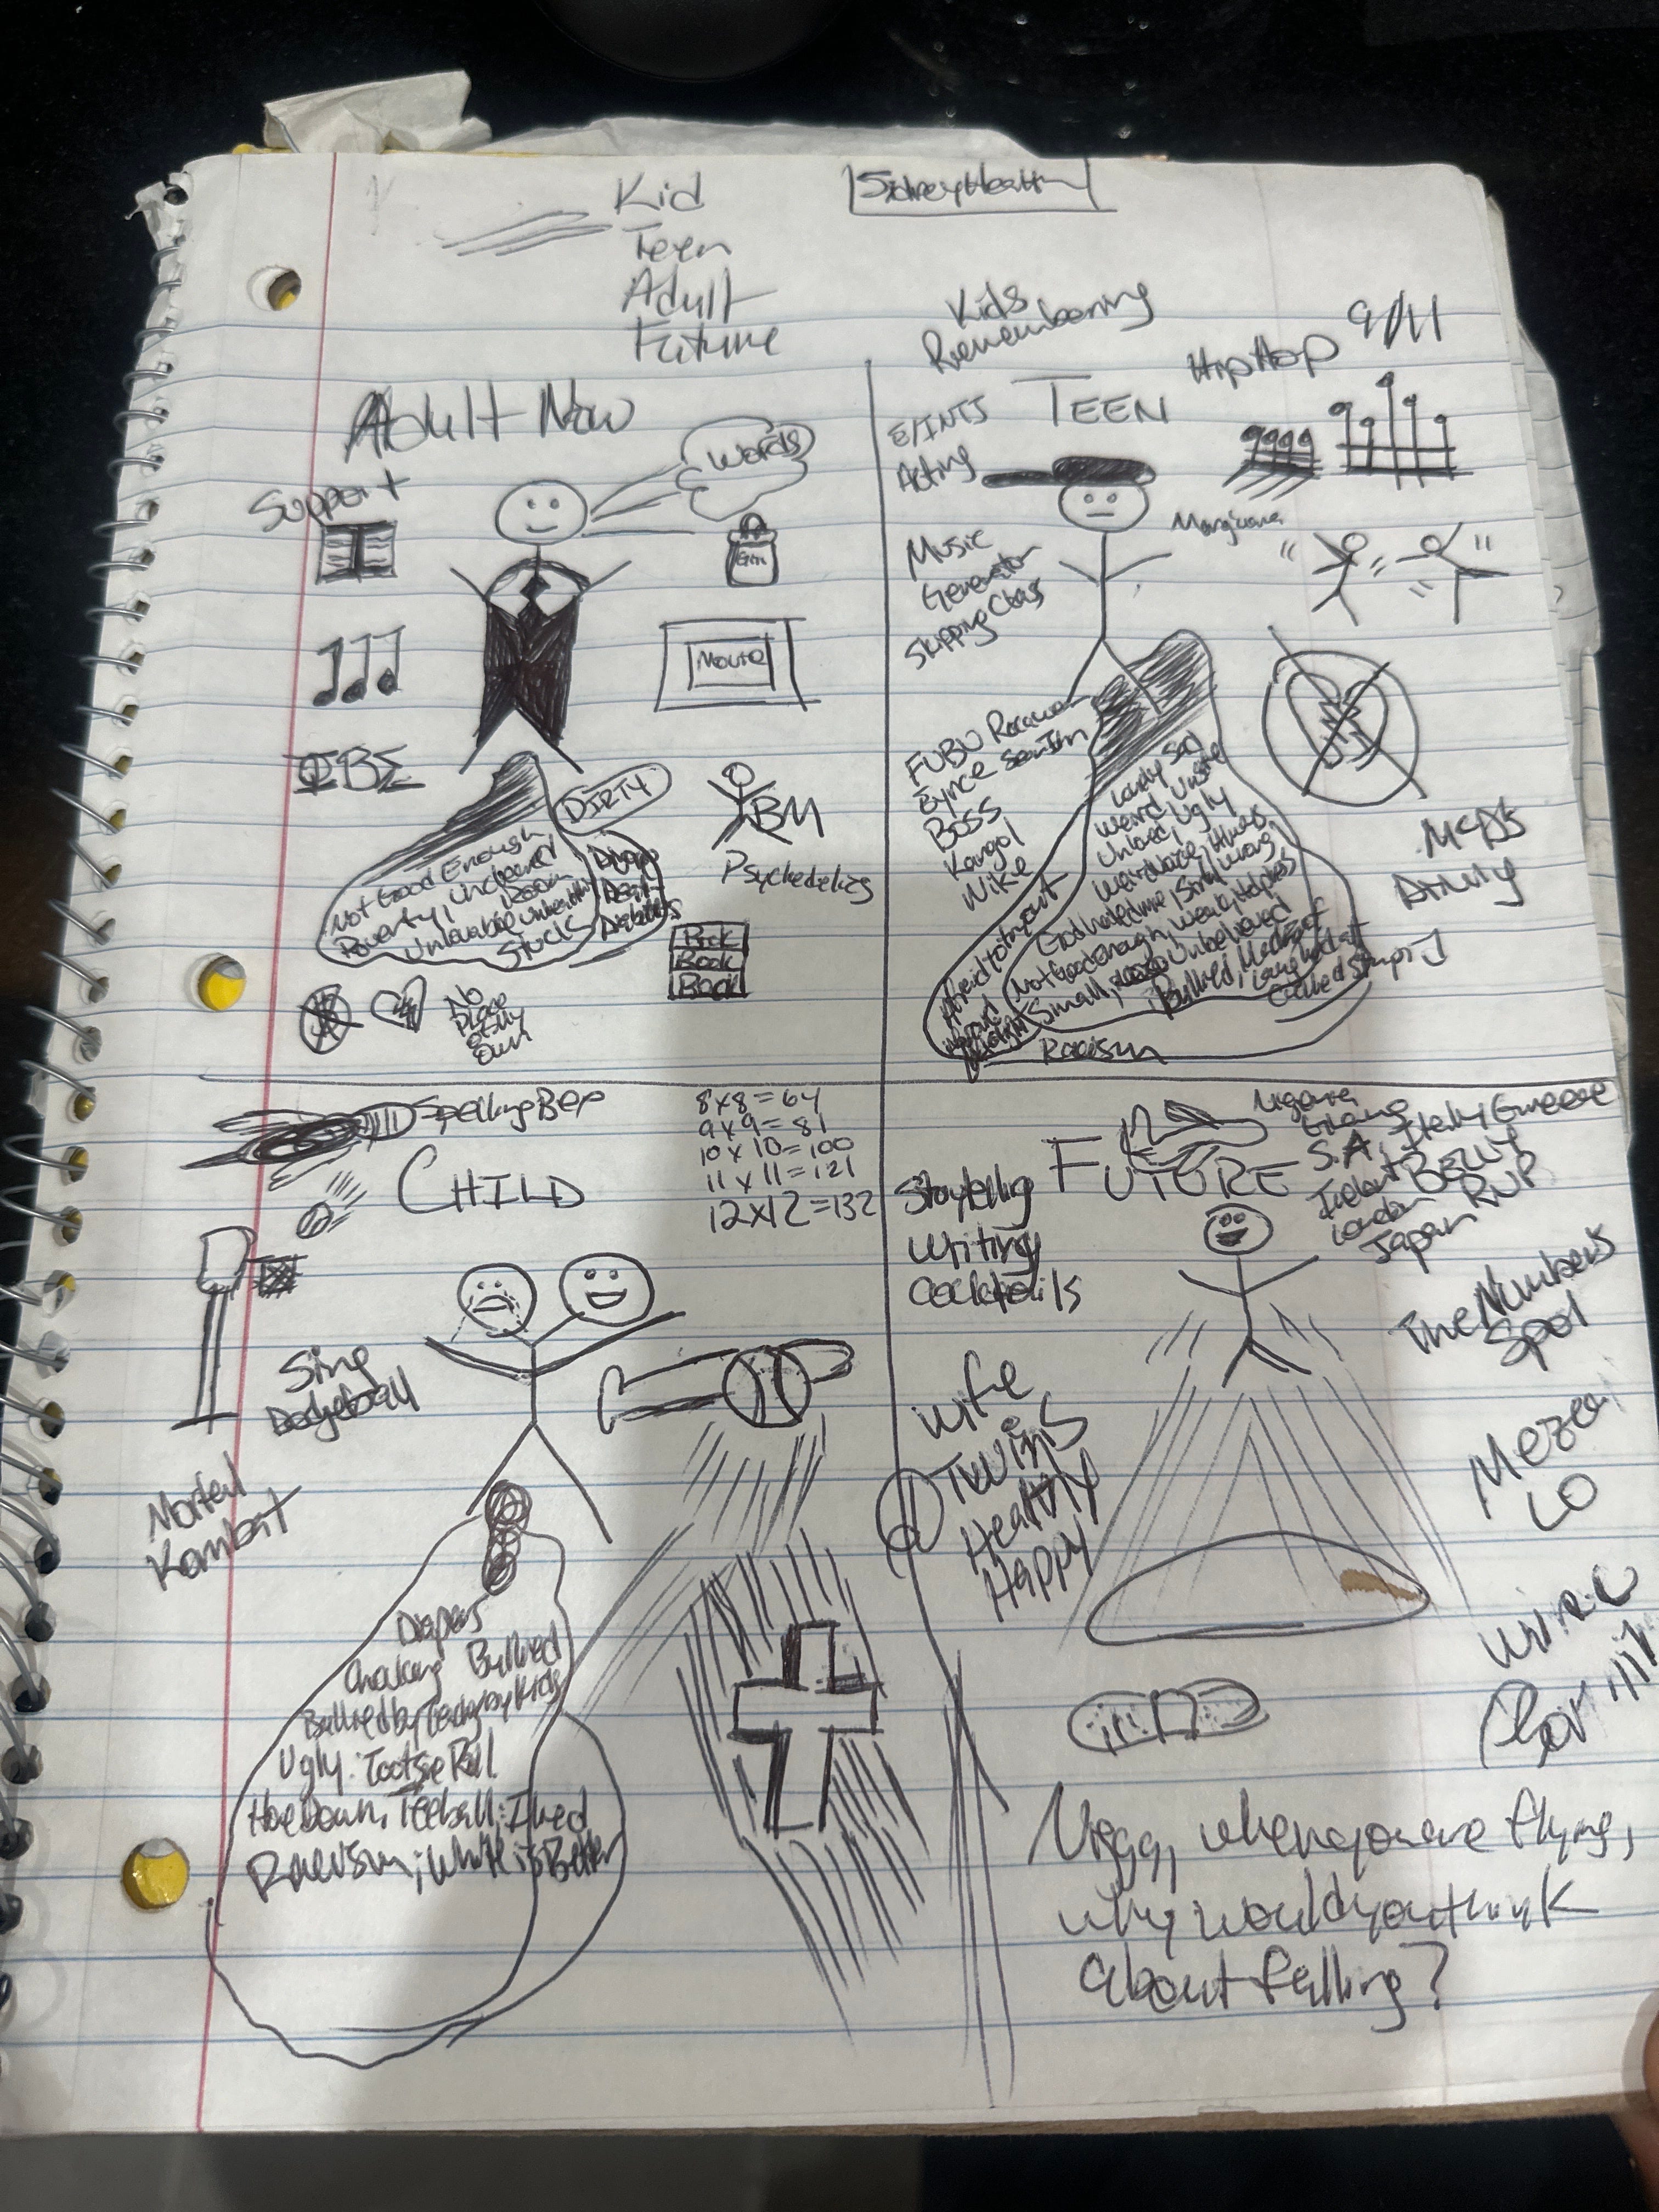 Kid
Teen
Adult
Future
Kids
Remembering
9/11
Hip Hop
Adult Now
Words
Support
Gym
Movie
ΦΒΣ
DIRTY
Not Good Enough
Poverty, Unclean
Room
Unlovable
Stuck
Death
Diabetes
BM
Psychedelics
Book
Book
Book
No
Place
of My
Own
TEEN
E/INTS
Acting
Music
Generator
Skipping Class
Marijuana
FUBU Rocawear
Enyce Sean John
BOSS
Kangol
Nike
Lonely Sad
Weird, Unsafe
Unloved Ugly
God hated me, Sin, Wrong
Not Good enough, Weak, Helpless
Small, Unbelieved
Bullied, Made fun of
Laughed at
Called Stupid
Afraid to try out
Racism
McD's
Spelling Bee
CHILD
8x8=64
9x9=81
10x10=100
11x11=121
12x12=132
Sing
Dodgeball
Mortal
Kombat
Diapers
Choking Bullied
Bullied by Teachers by Kids
Ugly: Tootsie Roll
Hoe Down, Teeball: I lied
Racism; White is Better
FUTURE
Storytelling
Writing
Cocktails
S.A, Italy Greece
London
Japan
The Numbers
Spot
Wife
Twins
Healthy
Happy
when you are flying,
why would you think
about falling?